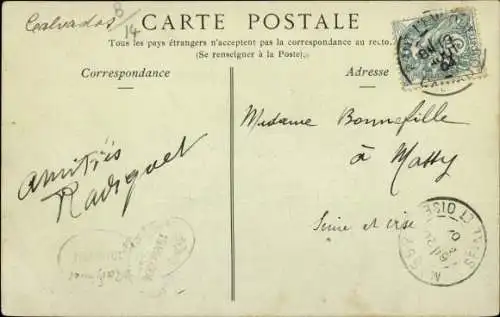 Calvados 8/14
CARTE POSTALE
Tous les pays étrangers n'acceptent pas la correspondance au recto.
(Se renseigner à la Poste).
Correspondance
Adresse
Madame Bonnefille
à Massy
Seine et oise
Amitiés
Radiguet
SEINE ET OISE